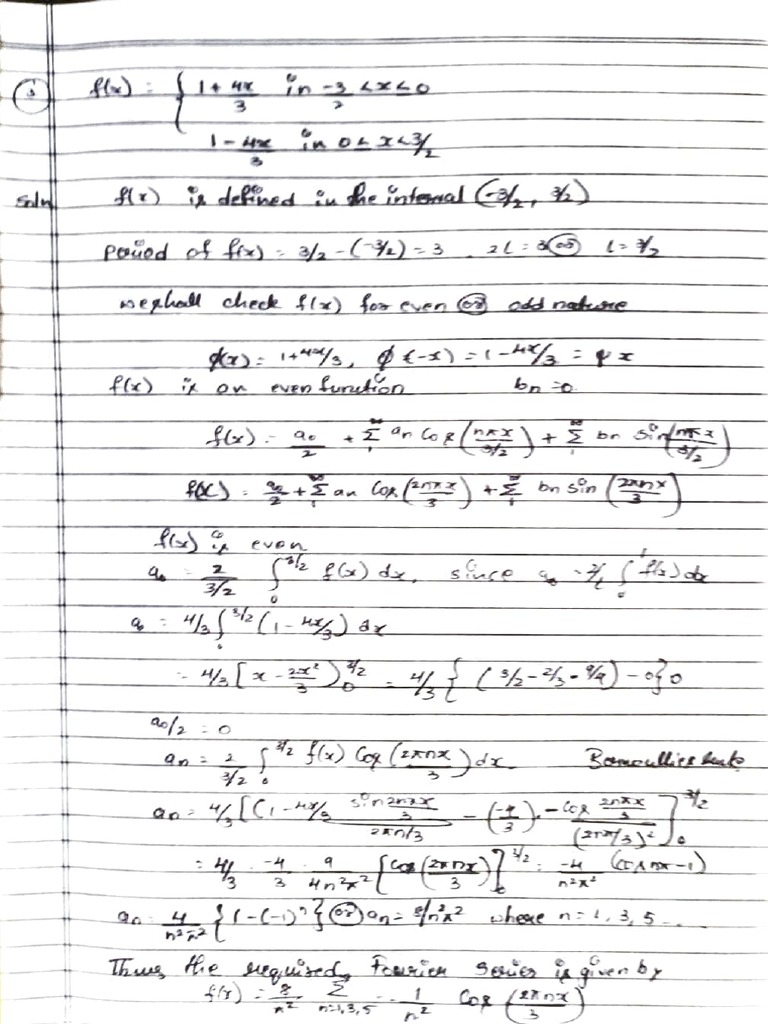 ③ f(x) = { 1 + 4x/3 in -3/2 < x < 0
1 - 4x/3 in 0 < x < 3/2
Soln f(x) is defined in the interval (-3/2, 3/2)
Period of f(x) = 3/2 - (-3/2) = 3 . 2l = 3 (or) l = 3/2
we shall check f(x) for even (or) odd nature
ϕ(x) = 1+4x/3, ϕ(-x) = 1-4x/3 = ψ x
f(x) is an even function bn = 0
f(x) = a₀/2 + Σ₁^∞ an Cos (nπx/3/2) + Σ₁^∞ bn sin (nπx/3/2)
f(x) = a₀/2 + Σ₁^∞ an Cos (2nπx/3) + Σ₁^∞ bn sin (2πnx/3)
f(x) is even
a₀ = 2/3/2 ∫₀^3/2 f(x) dx, since a₀ = 2/l ∫₀^l f(x) dx
a₀ = 4/3 ∫₀^3/2 (1 - 4x/3) dx
= 4/3 [x - 2x²/3]₀^3/2 = 4/3 { (3/2 - 2/3 - 9/4) - 0} 0
a₀/2 = 0
an = 2/3/2 ∫₀^3/2 f(x) Cos (2πnx/3) dx
an = 4/3 [(1 - 4x/3 sin 2nπx/3 / 2πn/3 - (-4/3) . -Cos 2nπx/3 / (2nπ/3)²]₀^3/2
= 4/3 . -4/3 . 9/4n²π² [Cos (2πnx/3)]₀^3/2 = -4/n²π² (cos nπ - 1)
an = 4/n²π² {1 - (-1)ⁿ} (or) an = 8/n²π² where n = 1, 3, 5 ...
Thus the required Fourier series is given by
f(x) = 8/π² Σ n=1,3,5 ... 1/n² Cos (2πnx/3)